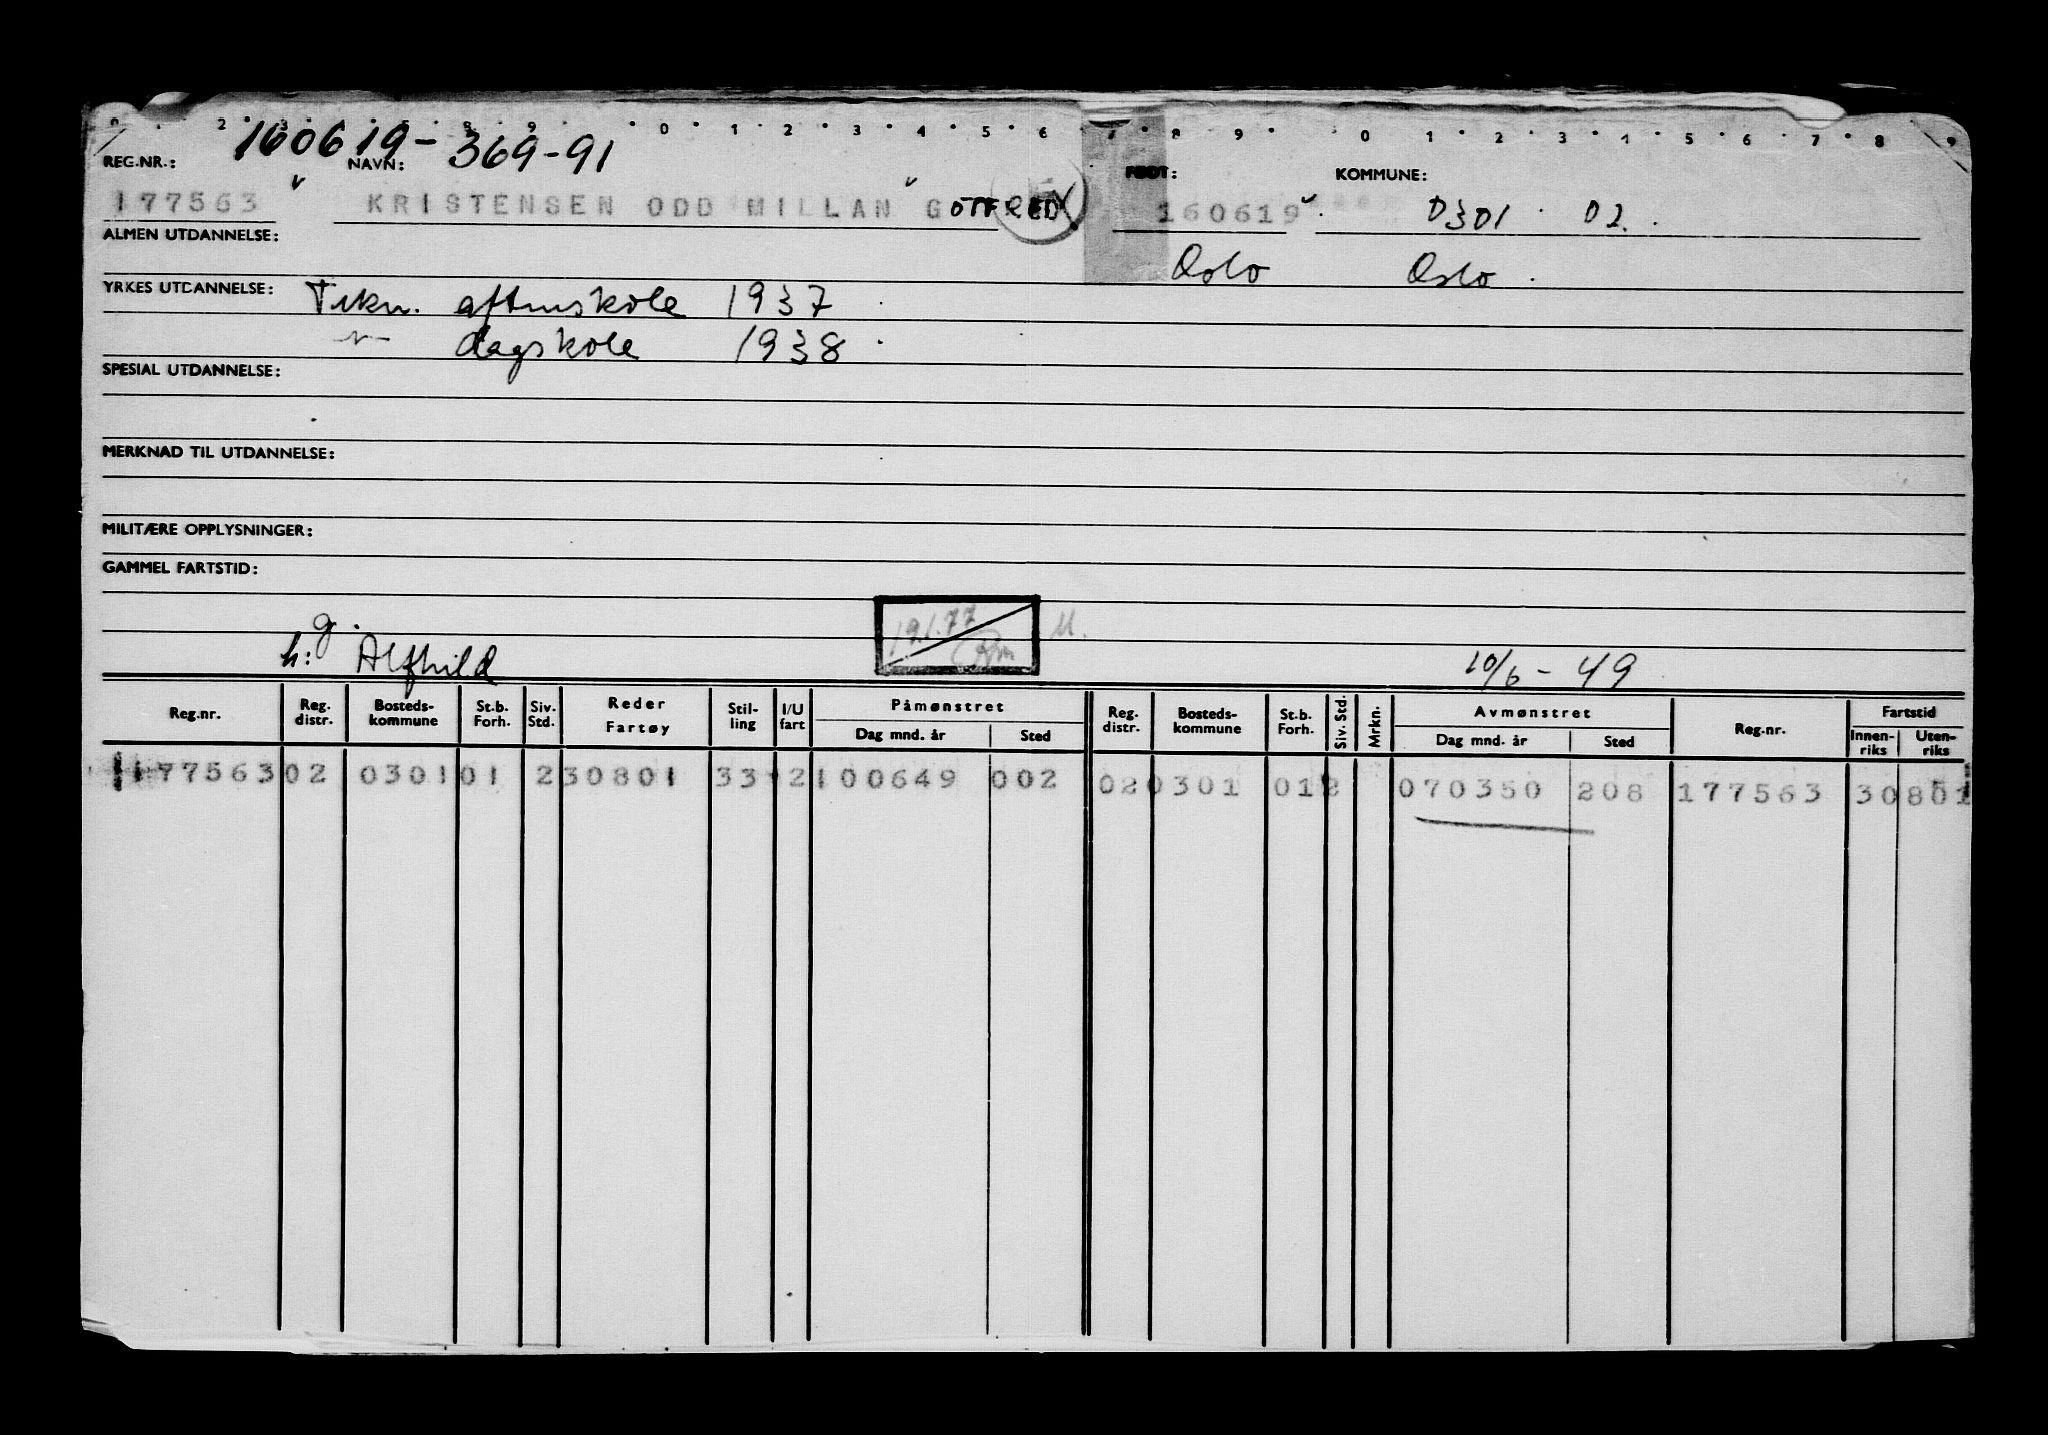 160619-369-91
REG.NR.: NAVN: FØDT: KOMMUNE:
177563 KRISTENSEN ODD MILLAN GOTFRED 160619 0301 02.
ALMEN UTDANNELSE: Oslo Oslo
YRKES UTDANNELSE: Tekn. aftenskole 1937
-"- dagskole 1938
SPESIAL UTDANNELSE:
MERKNAD TIL UTDANNELSE:
MILITÆRE OPPLYSNINGER:
GAMMEL FARTSTID:
19.1.77 M.
g.
h: Alfhild 10/6-49
Reg.nr. Reg. distr. Bosteds-kommune St.b. Forh. Siv. Std. Reder Fartøy Stil-ling I/U fart Påmønstret Dag mnd. år Sted Reg. distr. Bosteds-kommune St.b. Forh. Siv. Std. Mrkn. Avmønstret Dag mnd. år Sted Reg.nr. Fartstid Innen-riks Uten-riks
177563 02 0301 01 2 30801 33 2 100649 002 02 0301 01 2 070350 208 177563 30801